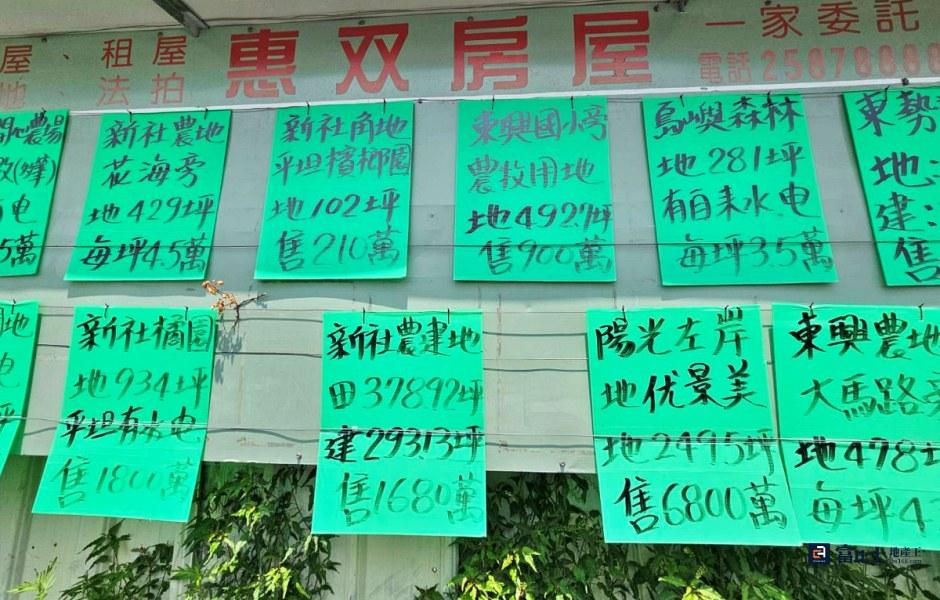 屋、租屋 惠双房屋 一家委託
地 法拍 電話25878888
新社農地
花海旁
地429坪
每坪4.5萬
新社角地
平坦檳榔園
地102坪
售210萬
東興國小旁
農牧用地
地4927坪
售900萬
島嶼森林
地281坪
有自来水电
每坪3.5萬
東勢
地
建
售
电
5萬
新社橘園
地934坪
平坦有水电
售1800萬
新社農建地
田378.92坪
建293.13坪
售1680萬
陽光左岸
地优景美
地2495坪
售6800萬
東興農地
大馬路旁
地478坪
每坪4
地產王